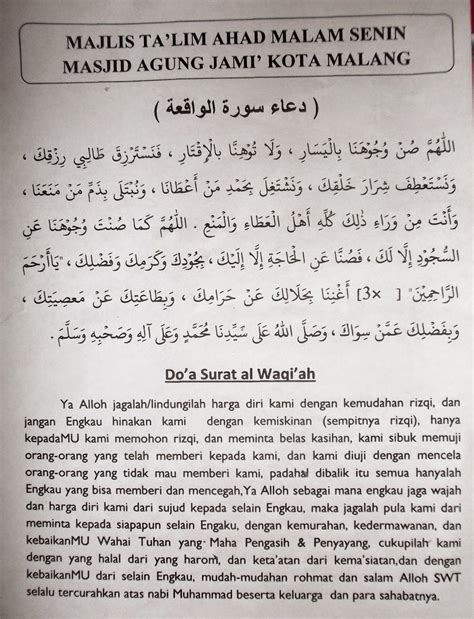 MAJLIS TA'LIM AHAD MALAM SENIN
MASJID AGUNG JAMI' KOTA MALANG
( دعاء سورة الواقعة )
اَللَّهُمَّ صُنْ وُجُوْهَنَا بِالْيَسَارِ ، وَلَا تُوْهِنَّا بِالْإِقْتَارِ ، فَنَسْتَرْزِقَ طَالِبِي رِزْقِكَ ،
وَنَسْتَعْطِفَ شِرَارَ خَلْقِكَ ، وَنَشْتَغِلَ بِحَمْدِ مَنْ أَعْطَانَا ، وَنُبْتَلَى بِذَمِّ مَنْ مَنَعَنَا ،
وَأَنْتَ مِنْ وَرَاءِ ذَلِكَ كُلِّهِ أَهْلُ الْعَطَاءِ وَالْمَنْعِ . اَللَّهُمَّ كَمَا صُنْتَ وُجُوْهَنَا عَنِ
السُّجُوْدِ إِلَّا لَكَ ، فَصُنَّا عَنِ الْحَاجَةِ إِلَّا إِلَيْكَ ، بِجُوْدِكَ وَكَرَمِكَ وَفَضْلِكَ ، "يَاأَرْحَمَ
الرَّاحِمِيْنَ" [ 3x] أَغْنِنَا بِحَلَالِكَ عَنْ حَرَامِكَ ، وَبِطَاعَتِكَ عَنْ مَعْصِيَتِكَ ،
وَبِفَضْلِكَ عَمَّنْ سِوَاكَ ، وَصَلَّى اللهُ عَلَى سَيِّدِنَا مُحَمَّدٍ وَعَلَى آلِهِ وَصَحْبِهِ وَسَلَّمَ .
Do'a Surat al Waqi'ah
Ya Alloh jagalah/lindungilah harga diri kami dengan kemudahan rizqi, dan
jangan Engkau hinakan kami dengan kemiskinan (sempitnya rizqi), hanya
kepadaMU kami memohon rizqi, dan meminta belas kasihan, kami sibuk memuji
orang-orang yang telah memberi kepada kami, dan kami diuji dengan mencela
orang-orang yang tidak mau memberi kami, padahal dibalik itu semua hanyalah
Engkau yang bisa memberi dan mencegah,Ya Alloh sebagai mana engkau jaga wajah
dan harga diri kami dari sujud kepada selain Engkau, maka jagalah pula kami dari
meminta kepada siapapun selain Engaku, dengan kemurahan, kedermawanan, dan
kebaikanMU Wahai Tuhan yang Maha Pengasih & Penyayang, cukupilah kami
dengan yang halal dari yang harom, dan keta'atan dari kema'siatan,dan dengan
kebaikanMU dari selain Engkau, mudah-mudahan rohmat dan salam Alloh SWT
selalu tercurahkan atas nabi Muhammad beserta keluarga dan para sahabatnya.